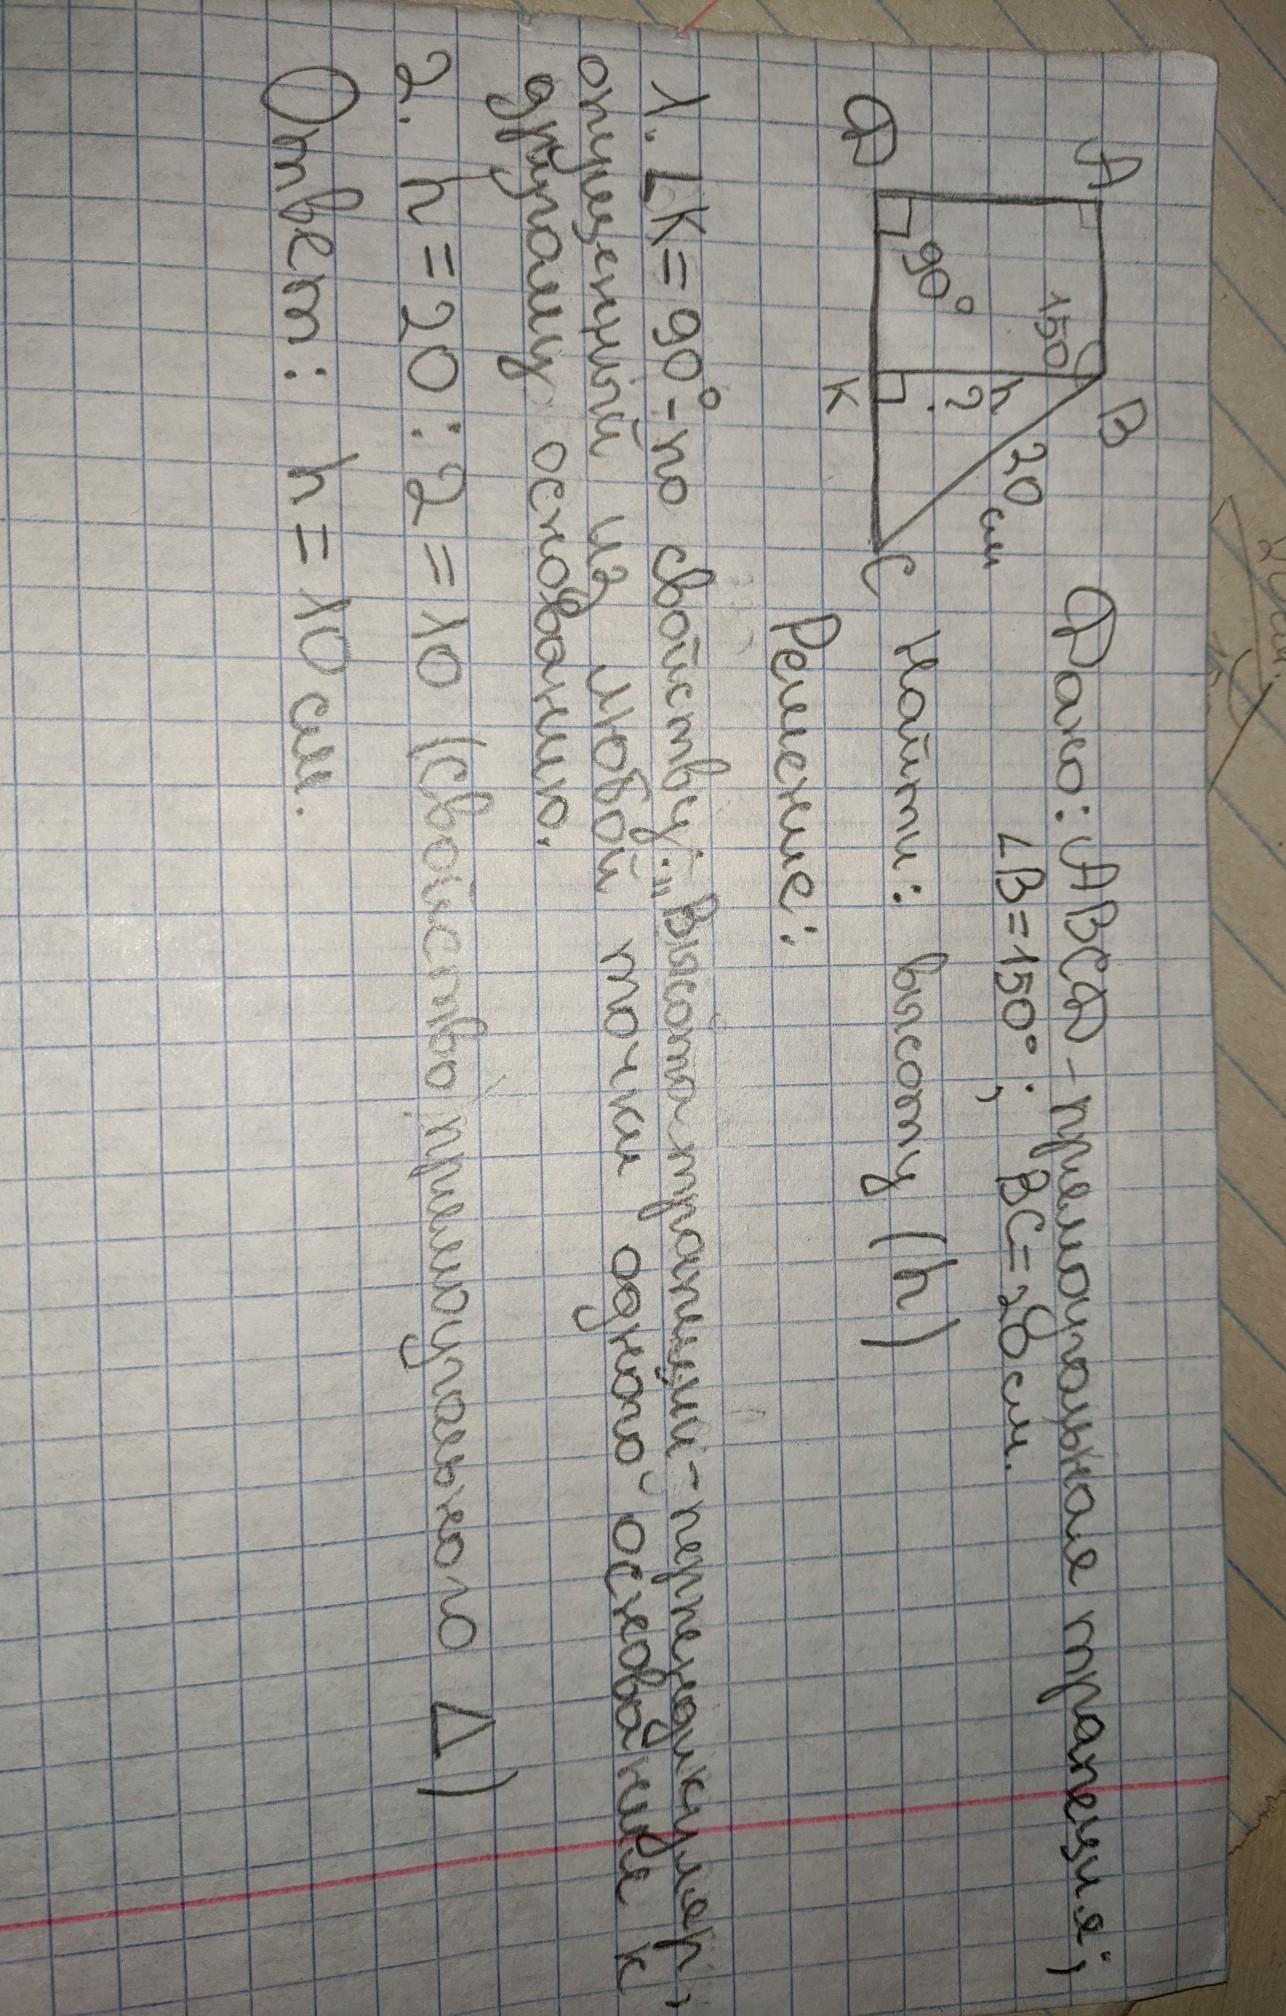 A
B
150
h
20 см
?
90°
D
K
C
Дано: ABCD - прямоугольная трапеция;
∠B=150°; BC=20 см.
Найти: высоту (h)
Решение:
1. ∠K=90° - по свойству: "Высота трапеции - перпендикуляр,
опущенный из любой точки одного основания к
другому основанию.
2. h=20:2=10 (свойство прямоугольного Δ)
Ответ: h=10 см.